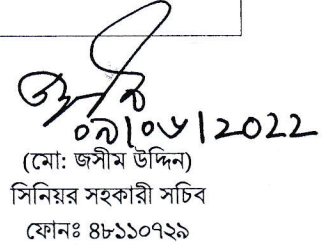 ০৯|০৬|2022
(মো: জসীম উদ্দিন)
সিনিয়র সহকারী সচিব
ফোনঃ ৪৮১১০৭২৯